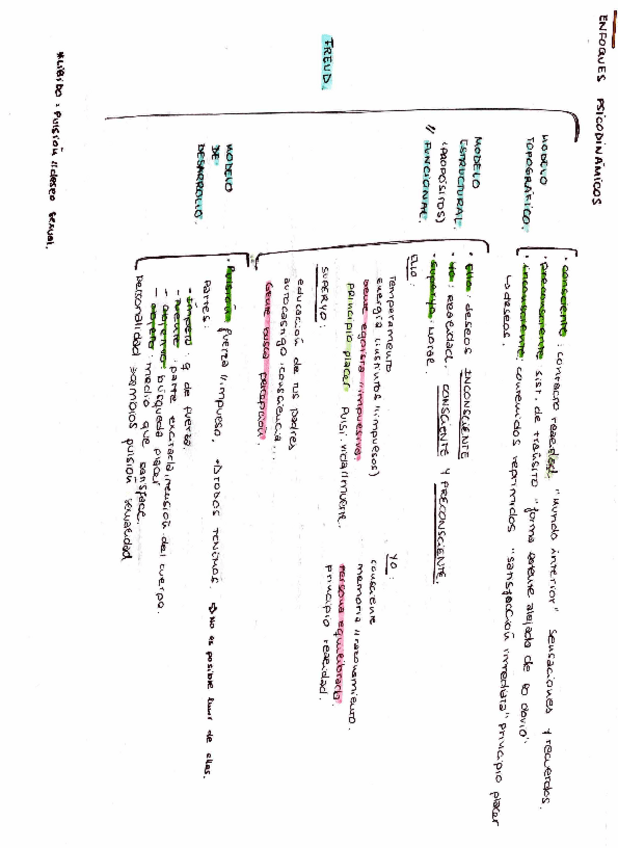 ENFOQUES PSICODINÁMICOS
FREUD.
MODELO
TOPOGRÁFICO.
• consciente: contacto realidad, "mundo interior" sensaciones y recuerdos.
• preconsciente sist. de tránsito "forma alejada de lo obvio".
• inconsciente: contenidos reprimidos "satisfacción inmediata" principio placer
↳ deseos.
MODELO
ESTRUCTURAL
(PROPÓSITOS)
// FUNCIONAL.
• Ello: deseos INCONSCIENTE
• Yo: realidad. CONSCIENTE Y PRECONSCIENTE.
• Superyo: moral.
ELLO:
temperamento
energía (instintos // impulsos)
Gente egoísta // impulsiva.
principio placer Pulsi. vida // muerte.
YO:
consciente
memoria // razonamiento.
Persona equilibrada.
principio realidad.
SUPERYO:
educación de tus padres
autocastigo, consciencia...
Gente busca perfección.
MODELO
DE
DESARROLLO.
• Pulsión: fuerza // impulso. → todos tenemos. → No es posible huir de ellas.
Partes:
- ímpetu: q de fuerza.
- fuente: parte excitada/tensión del cuerpo.
- búsqueda placer
- objeto: medio que satisface.
Personalidad = cambios pulsión sexualidad
*LIBIDO: Pulsión // deseo sexual.